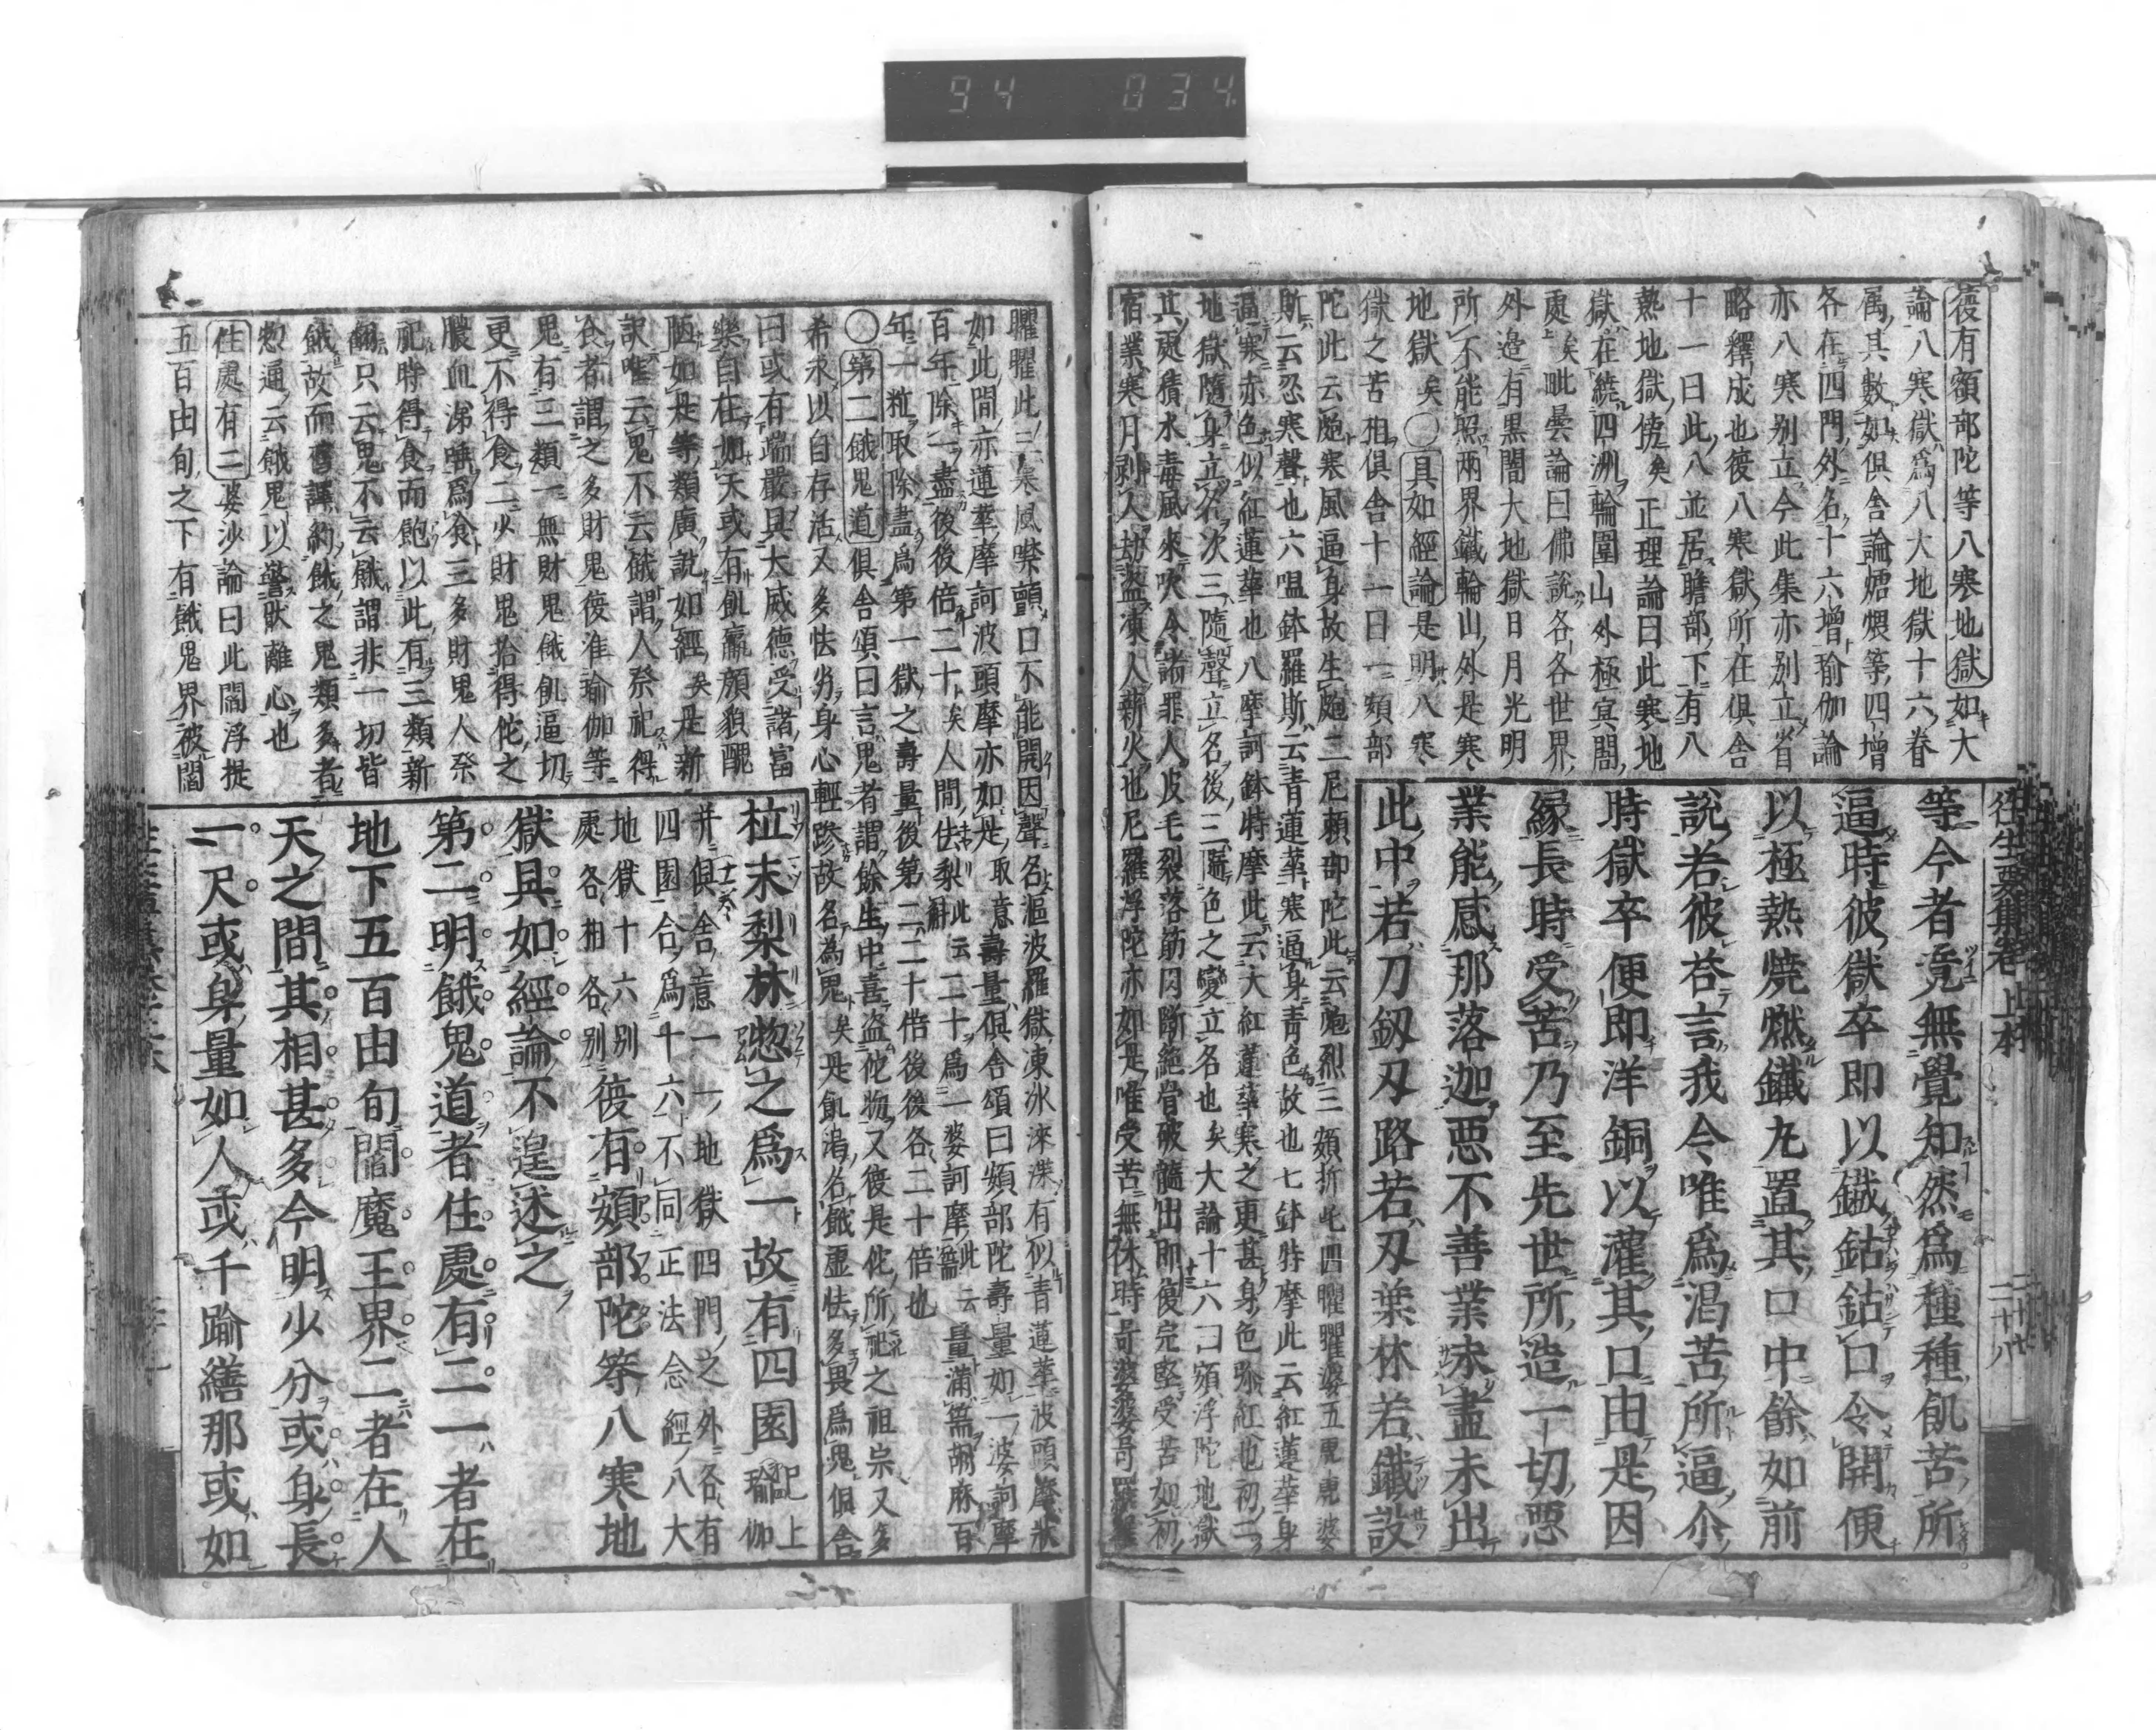 94 034
復有頞部陀等八寒地獄如大
論八寒獄爲八大地獄十六眷
属其數如俱舍論煻煨等四增
各在四門外名十六增瑜伽論
亦八寒别立今此集亦别立省
略釋成也復八寒獄所在俱舍
十一曰此八並居贍部下有八
熱地獄傍矣正理論曰此寒地
獄在繞四洲輪圍山外極冥闇
處矣毗曇論曰佛説各各世界
外邉有黒闇大地獄日月光明
所不能照兩界鐵輪山外是寒
地獄矣〇具如經論是明八寒
獄之苦相俱舍十一曰一頞部
陀此云皰寒風逼身故生皰二尼頼部陀此云皰烈三頞折吒四臛臛婆五虎虎婆
斯云忍寒聲也六嗢鉢羅斯云青蓮華寒逼身青色故也七鉢特摩此云紅蓮華身
逼寒赤色似紅蓮華也八摩訶鉢特摩此云大紅蓮華寒之更甚身色弥紅也初二
地獄隨身立名次三隨聲立名後三隨色之變立名也矣大論十六曰頞浮陀地獄
其處積氷毒風來吹令諸罪人皮毛裂落筋肉斷絶骨破髓出即復完堅受苦如初
宿業寒月剥人劫盗凍人薪火也尼羅浮陀亦如是唯受苦無休時
等今者竟無覺知然爲種種飢苦所
逼時彼獄卒即以鐵鈷鈷口令開便
以極熱燒燃鐵丸置其口中餘如前
説若彼荅言我今唯爲渇苦所逼尒
時獄卒便即洋銅以灌其口由是因
縁長時受苦乃至先世所造一切惡
業能感那落迦惡不善業未盡未出
此中若刀釼刃路若刃葉林若鐵設
往生要集卷上本 二十八
臛臛此三寒風噤顫口不能開因聲名漚波羅獄凍氷凍渫有似青蓮華波頭摩狀
如此間赤蓮華摩訶波頭摩亦如是取意壽量俱舍頌曰頞部陀壽量如一婆訶摩
百年除一盡後後倍二十矣人間佉梨此云二十斛爲一婆訶摩此云篅量滿篅胡麻百
年一粒取除盡爲第一獄之壽量後第二二十倍後後各二十倍也
〇第二餓鬼道俱舍頌曰言鬼者謂餘生中喜盗佗物又復是佗所祀之祖宗又多
希求以自存活又多怯劣身心輕躁故名為鬼矣是飢渇名餓虚怯多畏爲鬼俱舍
曰或有端嚴具大威德受諸富
樂自在如天或有飢羸顔貌醜
陋如是等類廣説如經矣是新
訳唯云鬼不云餓謂人祭祀得
食者謂之多財鬼復准瑜伽等
鬼有三類一無財鬼餓飢逼切
更不得食二少財鬼拾得佗之
膿血涕唾爲食三多財鬼人祭
祀時得食而飽以此有三類新
翻只云鬼不云餓謂非一切皆
餓故而舊譯約餓之鬼類多者
惣通云餓鬼以警猒離心也
住處有二婆沙論曰此閻浮提
五百由旬之下有餓鬼界被閻
柆末梨林惣之爲一故有四園 已上瑜伽
并俱舍意一一地獄四門之外各有
四園合爲十六不同正法念經八大
地獄十六别
處各相各别 復有頞部陀等八寒地
獄具如經論不遑述之
第二明餓鬼道者住處有二一者在
地下五百由旬閻魔王界二者在人
天之間其相甚多今明少分或身長
一尺或身量如人或千踰繕那或如